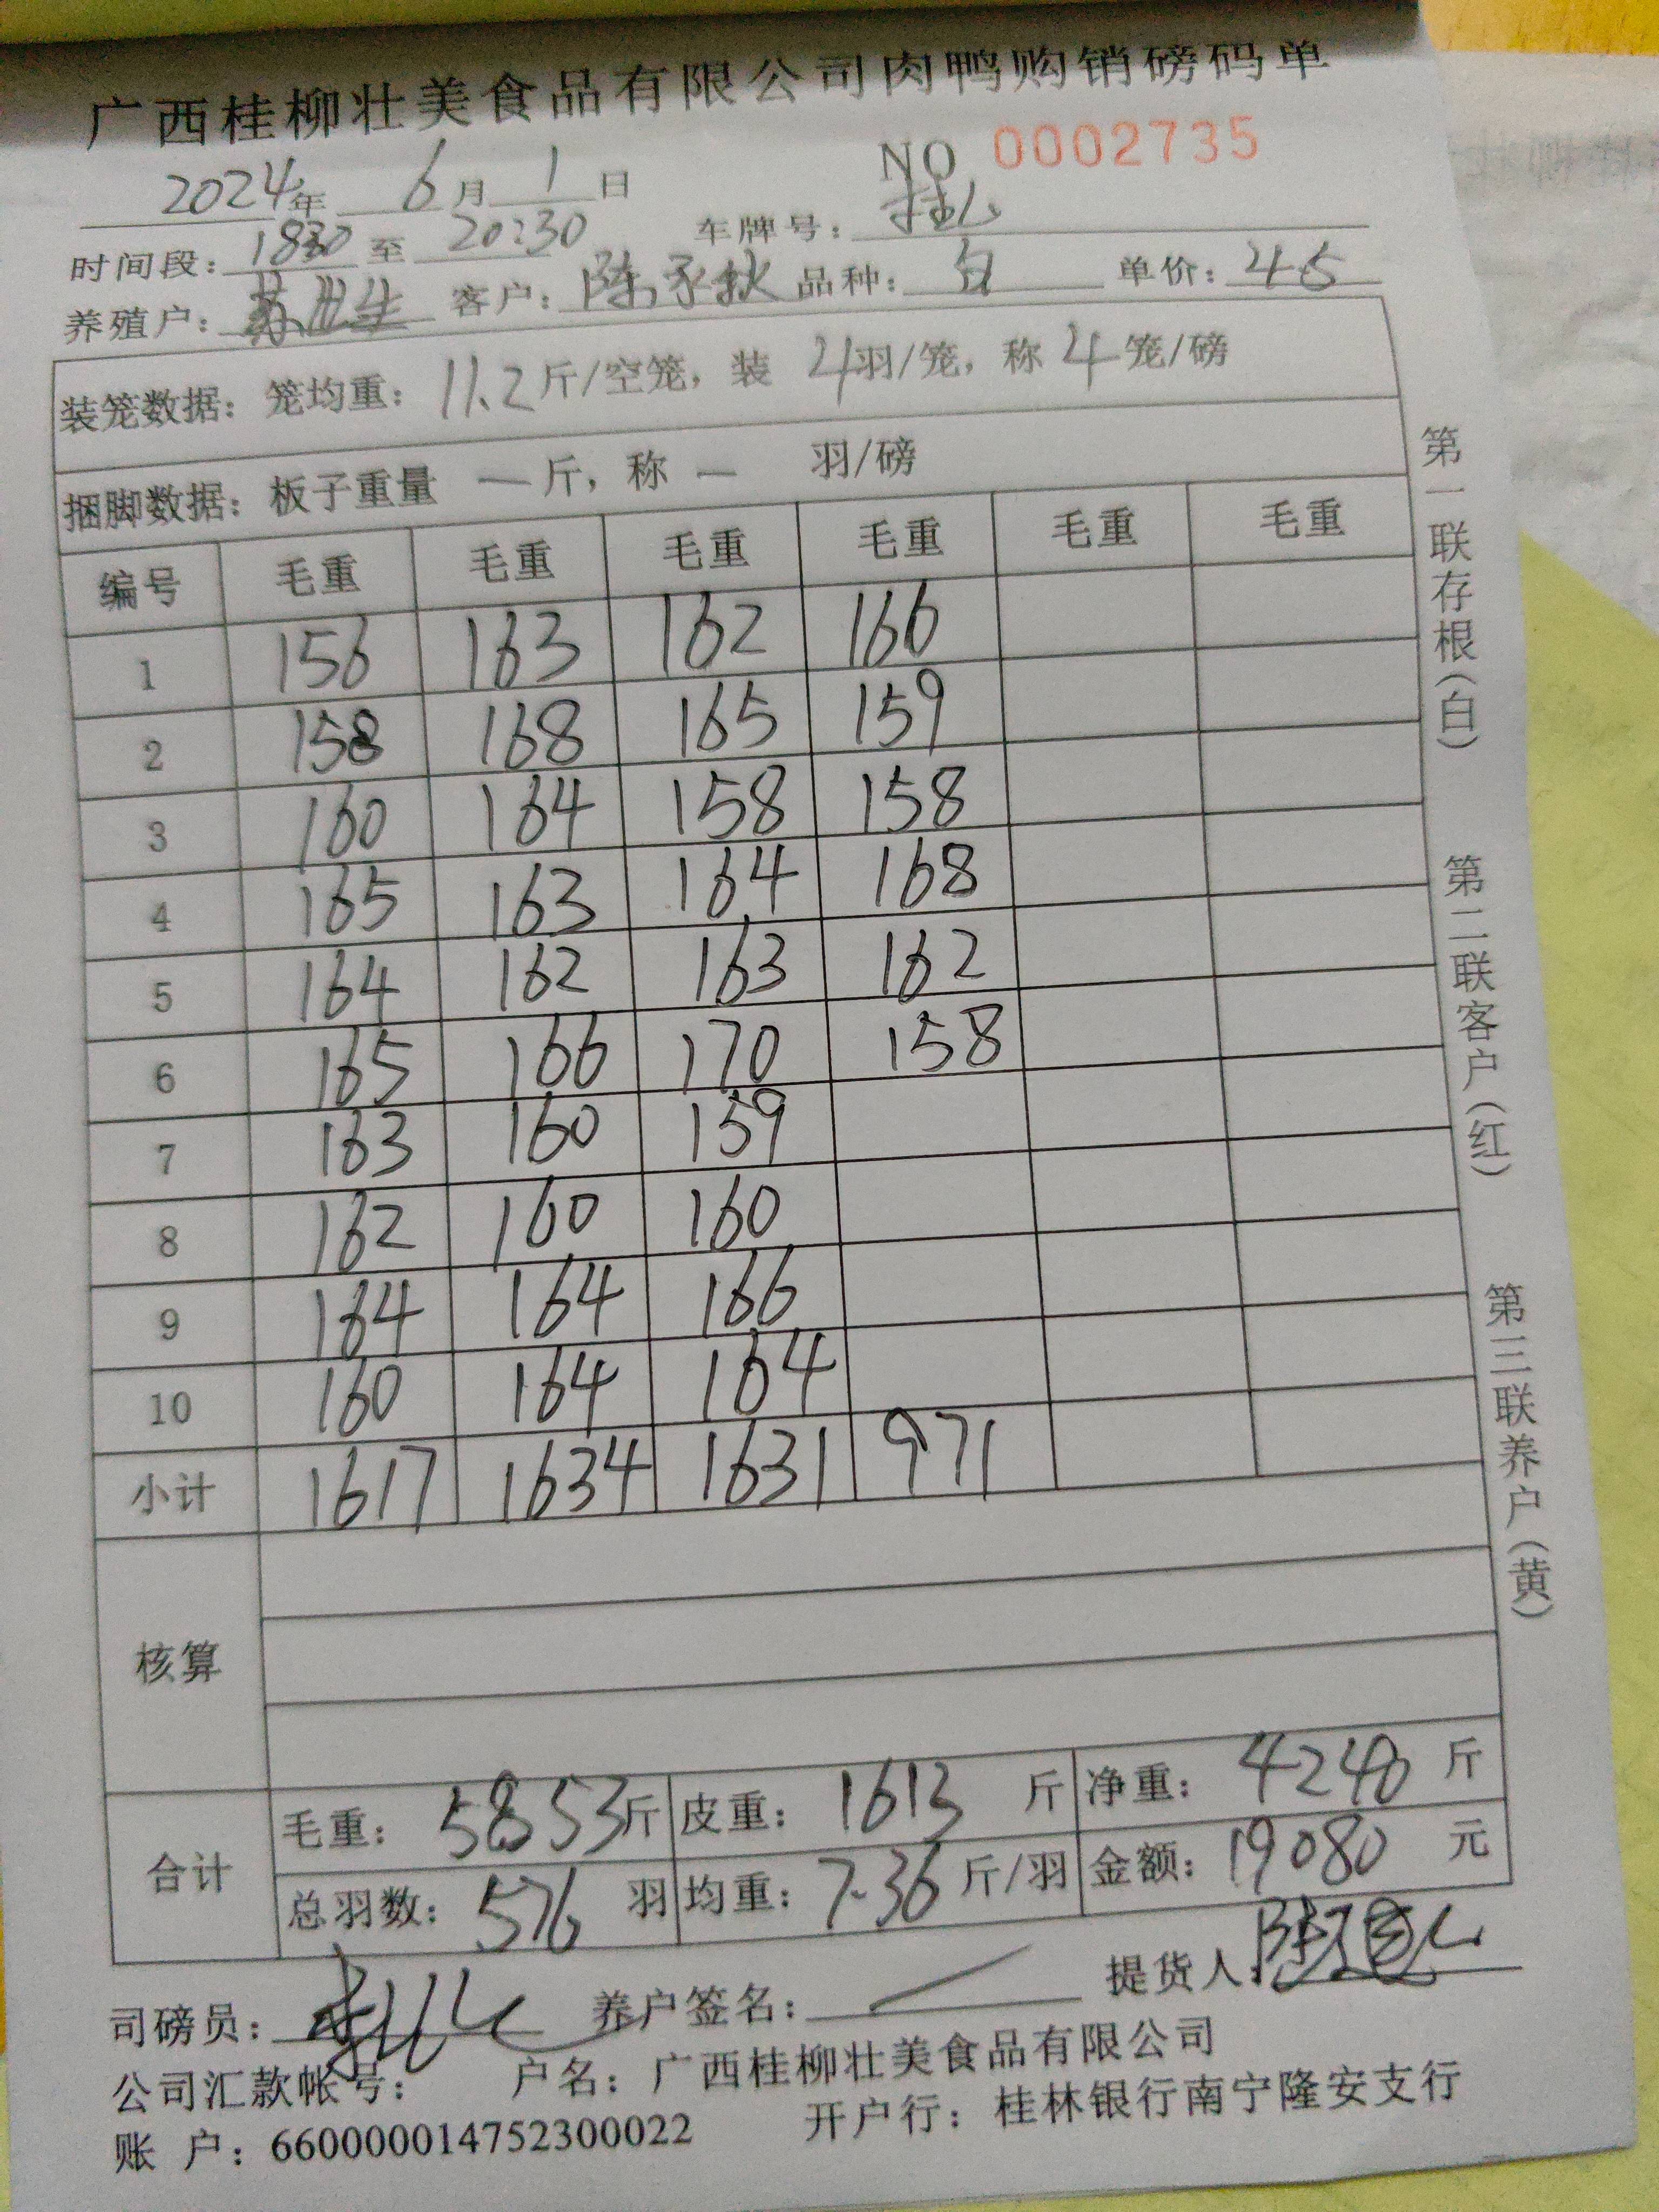 广西桂柳壮美食品有限公司肉鸭购销磅码单
NO 0002735
2024年 6月 1日
时间段: 1830 至 20:30 车牌号:
养殖户: 客户: 陈 秋 品种: 白 单价: 4.5
装笼数据: 笼均重: 11.2斤/空笼, 装 4羽/笼, 称 4笼/磅
捆脚数据: 板子重量 一斤, 称 一 羽/磅
编号 毛重 毛重 毛重 毛重 毛重 毛重
1 156 163 162 166
2 158 168 165 159
3 160 164 158 158
4 165 163 164 168
5 164 162 163 162
6 165 166 170 158
7 163 160 159
8 162 160 160
9 164 164 166
10 160 164 164
小计 1617 1634 1631 971
核算
合计
毛重: 5853斤 皮重: 1613 斤 净重: 4240 斤
总羽数: 576 羽 均重: 7.36 斤/羽 金额: 19080 元
司磅员: 养户签名: 提货人:
公司汇款帐号: 户名: 广西桂柳壮美食品有限公司
账 户: 660000014752300022 开户行: 桂林银行南宁隆安支行
第一联存根(白)
第二联客户(红)
第三联养户(黄)